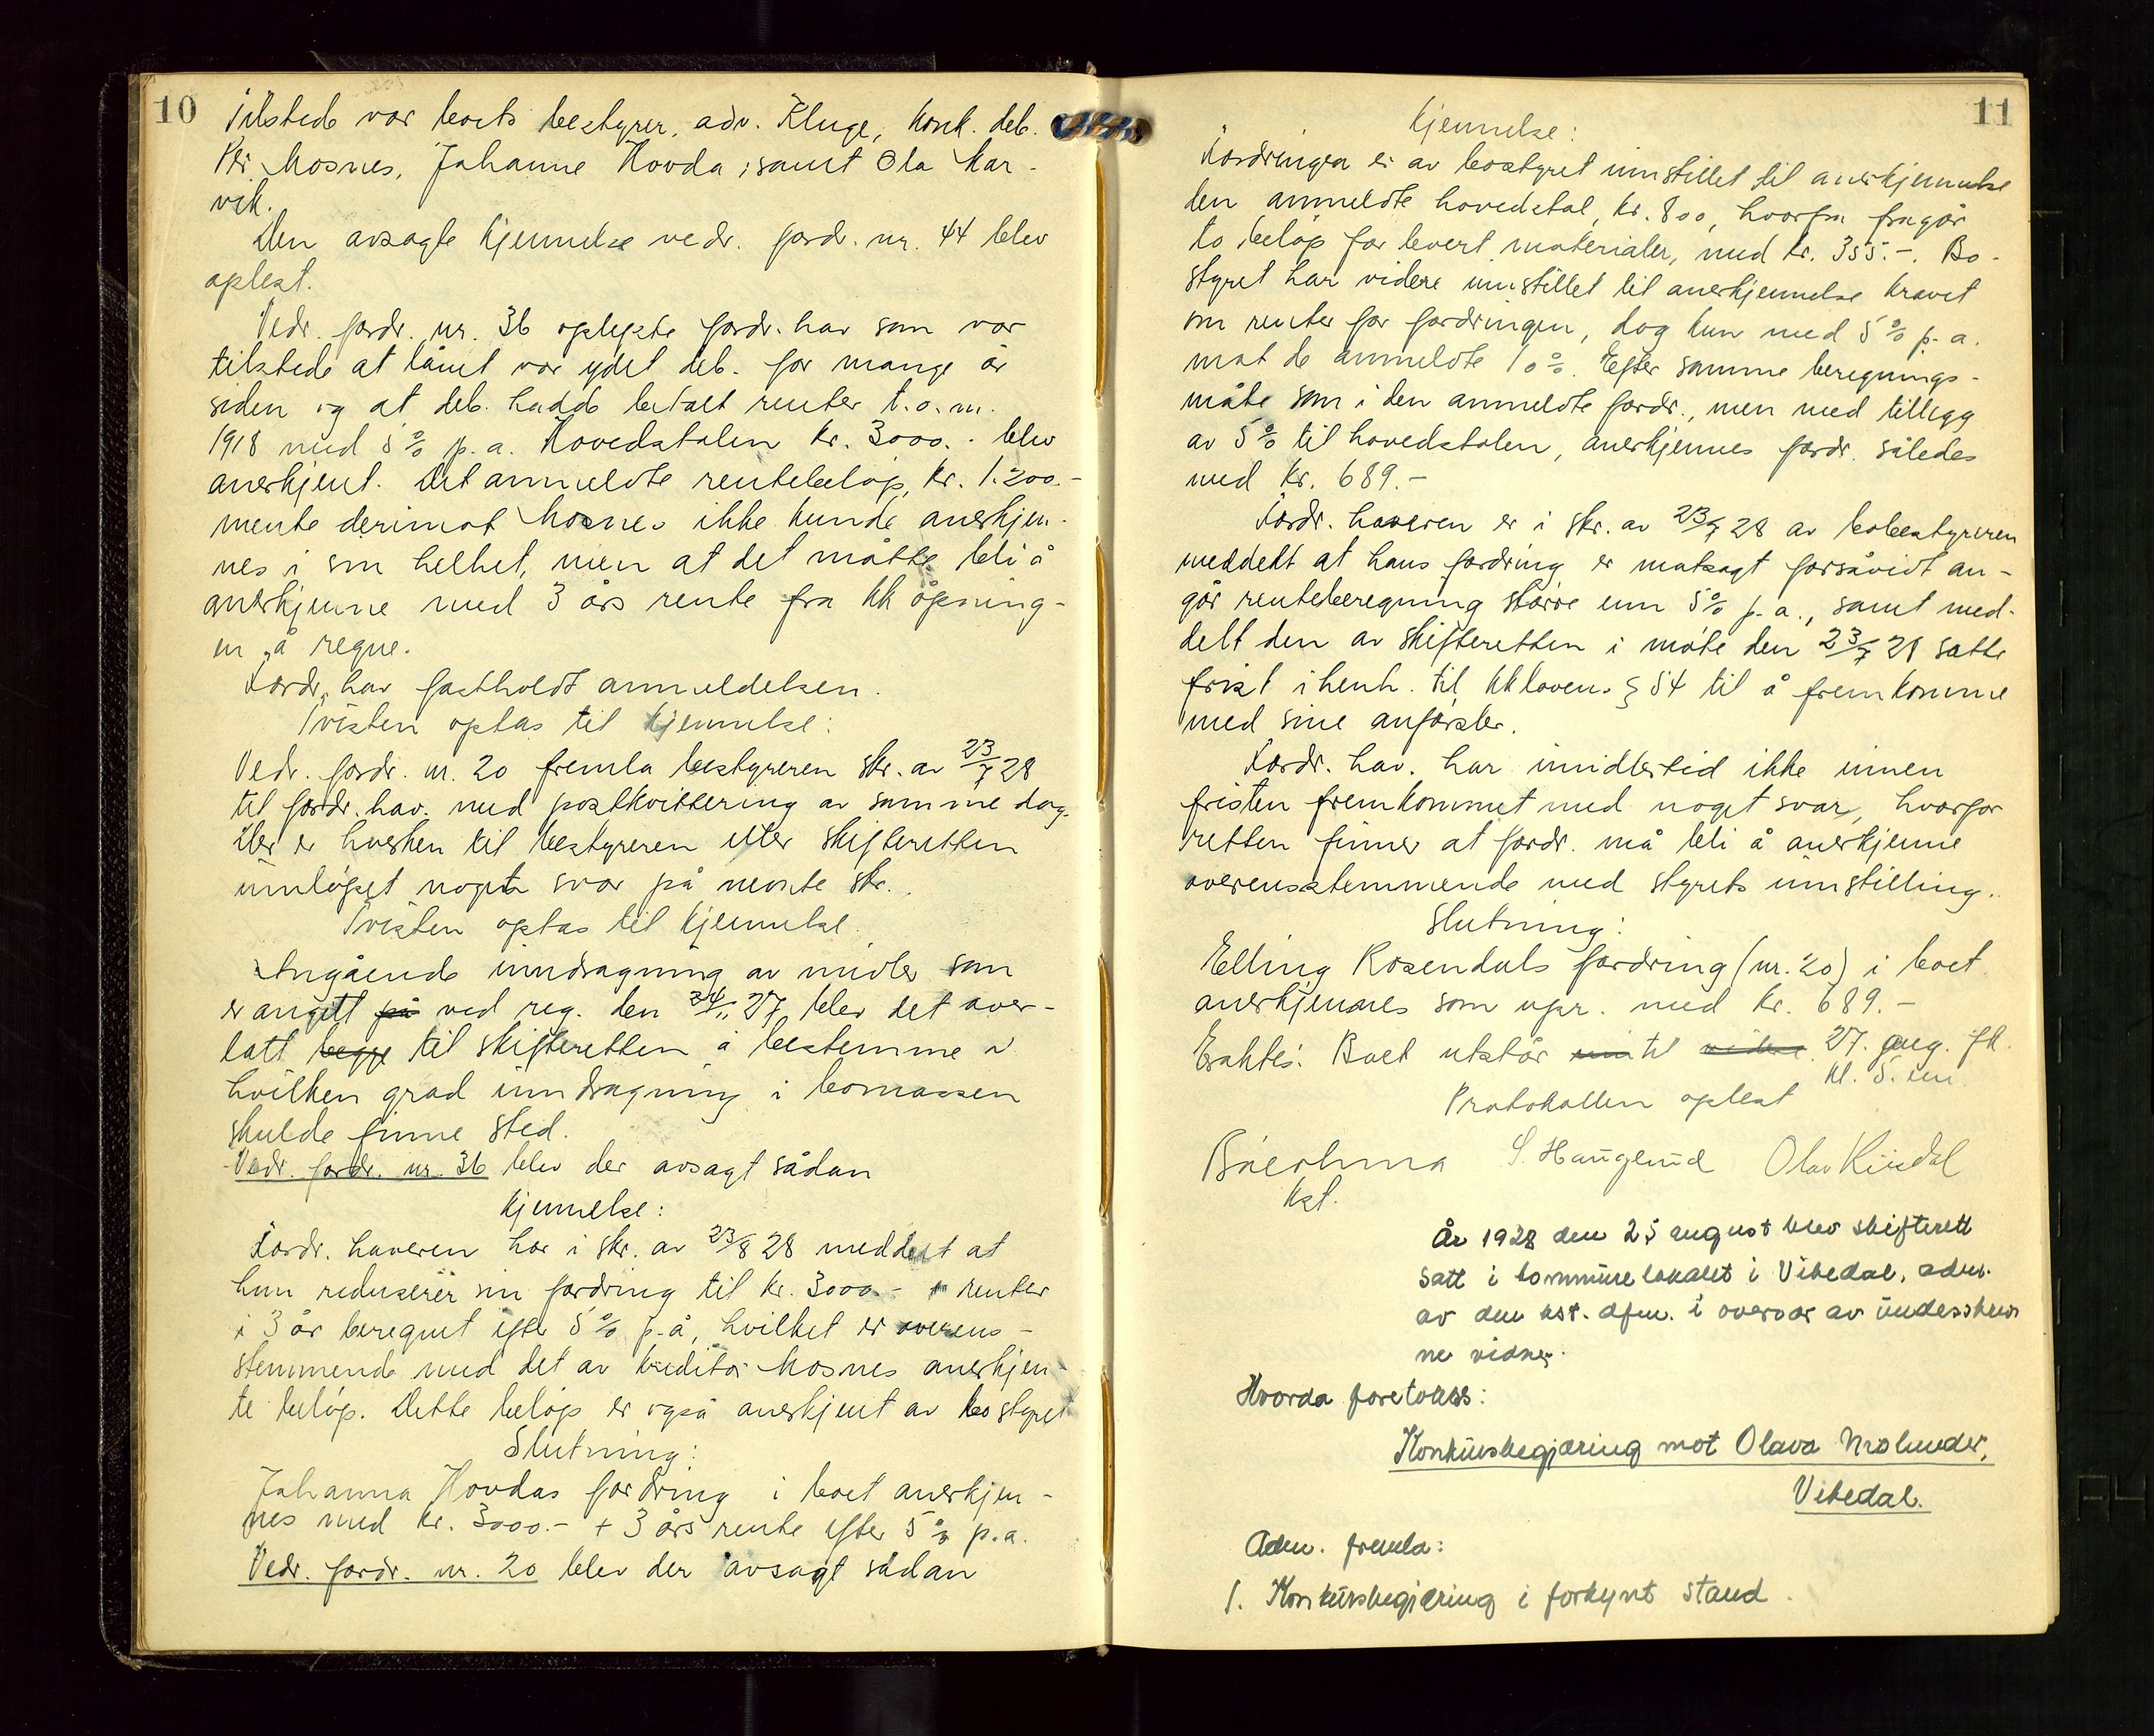 10
Tilstede var boets bestyrer, adv. Kluge, konk. deb.
Per Mosnes, Johanne Hovda, samt Ola Kar-
vik.
Den avsagte kjennelse vedr. fordr. nr. 44 blev
oplest.
Vedr. fordr. nr. 36 oplyste fordr. hav som var
tilstede at lånet var ydet deb. for mange år
siden og at deb. hadde betalt renter t.o.m.
1918 med 5% p.a. Hovedstolen kr. 3000.- blev
anerkjent. Det anmeldte rentebeløp, kr. 1.200.-
mente derimot Mosnes ikke kunde anerkjen-
nes i sin helhet, men at det måtte bli å
anerkjenne med 3 års rente fra kk åpning-
en å regne.
Fordr. hav fastholdt anmeldelsen.
Tvisten optas til kjennelse:
Vedr. fordr. nr. 20 fremla bestyreren skr. av 23/7 28
til fordr. hav. med postkvittering av samme dag.
Der er hverken til bestyreren eller skifteretten
innløpet noget svar på nevnte skr.
Tvisten optas til kjennelse.
Angående inndragning av midler som
er angitt på ved reg. den 24/11 27 blev det over-
latt begge til skifteretten å bestemme i
hvilken grad inndragning i bomassen
skulde finne sted.
Vedr. fordr. nr. 36 blev der avsagt sådan
kjennelse:
Fordr. haveren har i skr. av 23/8 28 meddelt at
hun reduserer sin fordring til kr. 3000.- + renter
i 3 år beregnet efter 5% p.a, hvilket er overens-
stemmende med det av kreditor Mosnes anerkjen-
te beløp. Dette beløp er også anerkjent av bostyret
Slutning:
Johanna Hovdas fordring i boet anerkjen-
nes med kr. 3000.- + 3 års rente efter 5% p.a.
Vedr. fordr. nr. 20 blev der avsagt sådan
11
Kjennelse:
Fordringen er av bostyret innstillet til anerkjennelse
den anmeldte hovedstol, kr. 800, hvorfra fragår
to beløp for levert materialer, med kr. 355.-. Bo-
styret har videre innstillet til anerkjennelse kravet
om renter for fordringen, dog kun med 5% p.a.
mot de anmeldte 10%. Efter samme beregnings-
måte som i den anmeldte fordr., men med tillegg
av 5% til hovedstolen, anerkjennes fordr. således
med kr. 689.-
Fordr. haveren er i skr. av 23/7 28 av bobestyreren
meddelt at hans fordring er motsagt forsåvidt an-
går renteberegning større enn 5% p.a., samt med-
delt den av skifteretten i møte den 23/7 28 satte
frist i henh. til kkloven § 54 til å fremkomme
med sine anførsler.
Fordr. hav. har imidlertid ikke innen
fristen fremkommet med noget svar, hvorfor
retten finner at fordr. må bli å anerkjenne
overensstemmende med styrets innstilling.
Slutning:
Elling Rosendals fordring (nr. 20) i boet
anerkjennes som upr. med kr. 689.-
Esaktes: Boet utstår til 27. aug. fk.
kl. 5. em.
Protokollen oplest
S. Hauglund Olav Kindal
kst.
År 1928 den 25 august blev skifterett
satt i kommunelokalet i Vikedal, adm.
av den kst. dfm. i overvær av underskrev
ne vidner.
Hvorda foretokes:
Konkursbegjæring mot Olava Mølunder,
Vikedal.
Adm. fremla:
1. Konkursbegjæring i forkynt stand